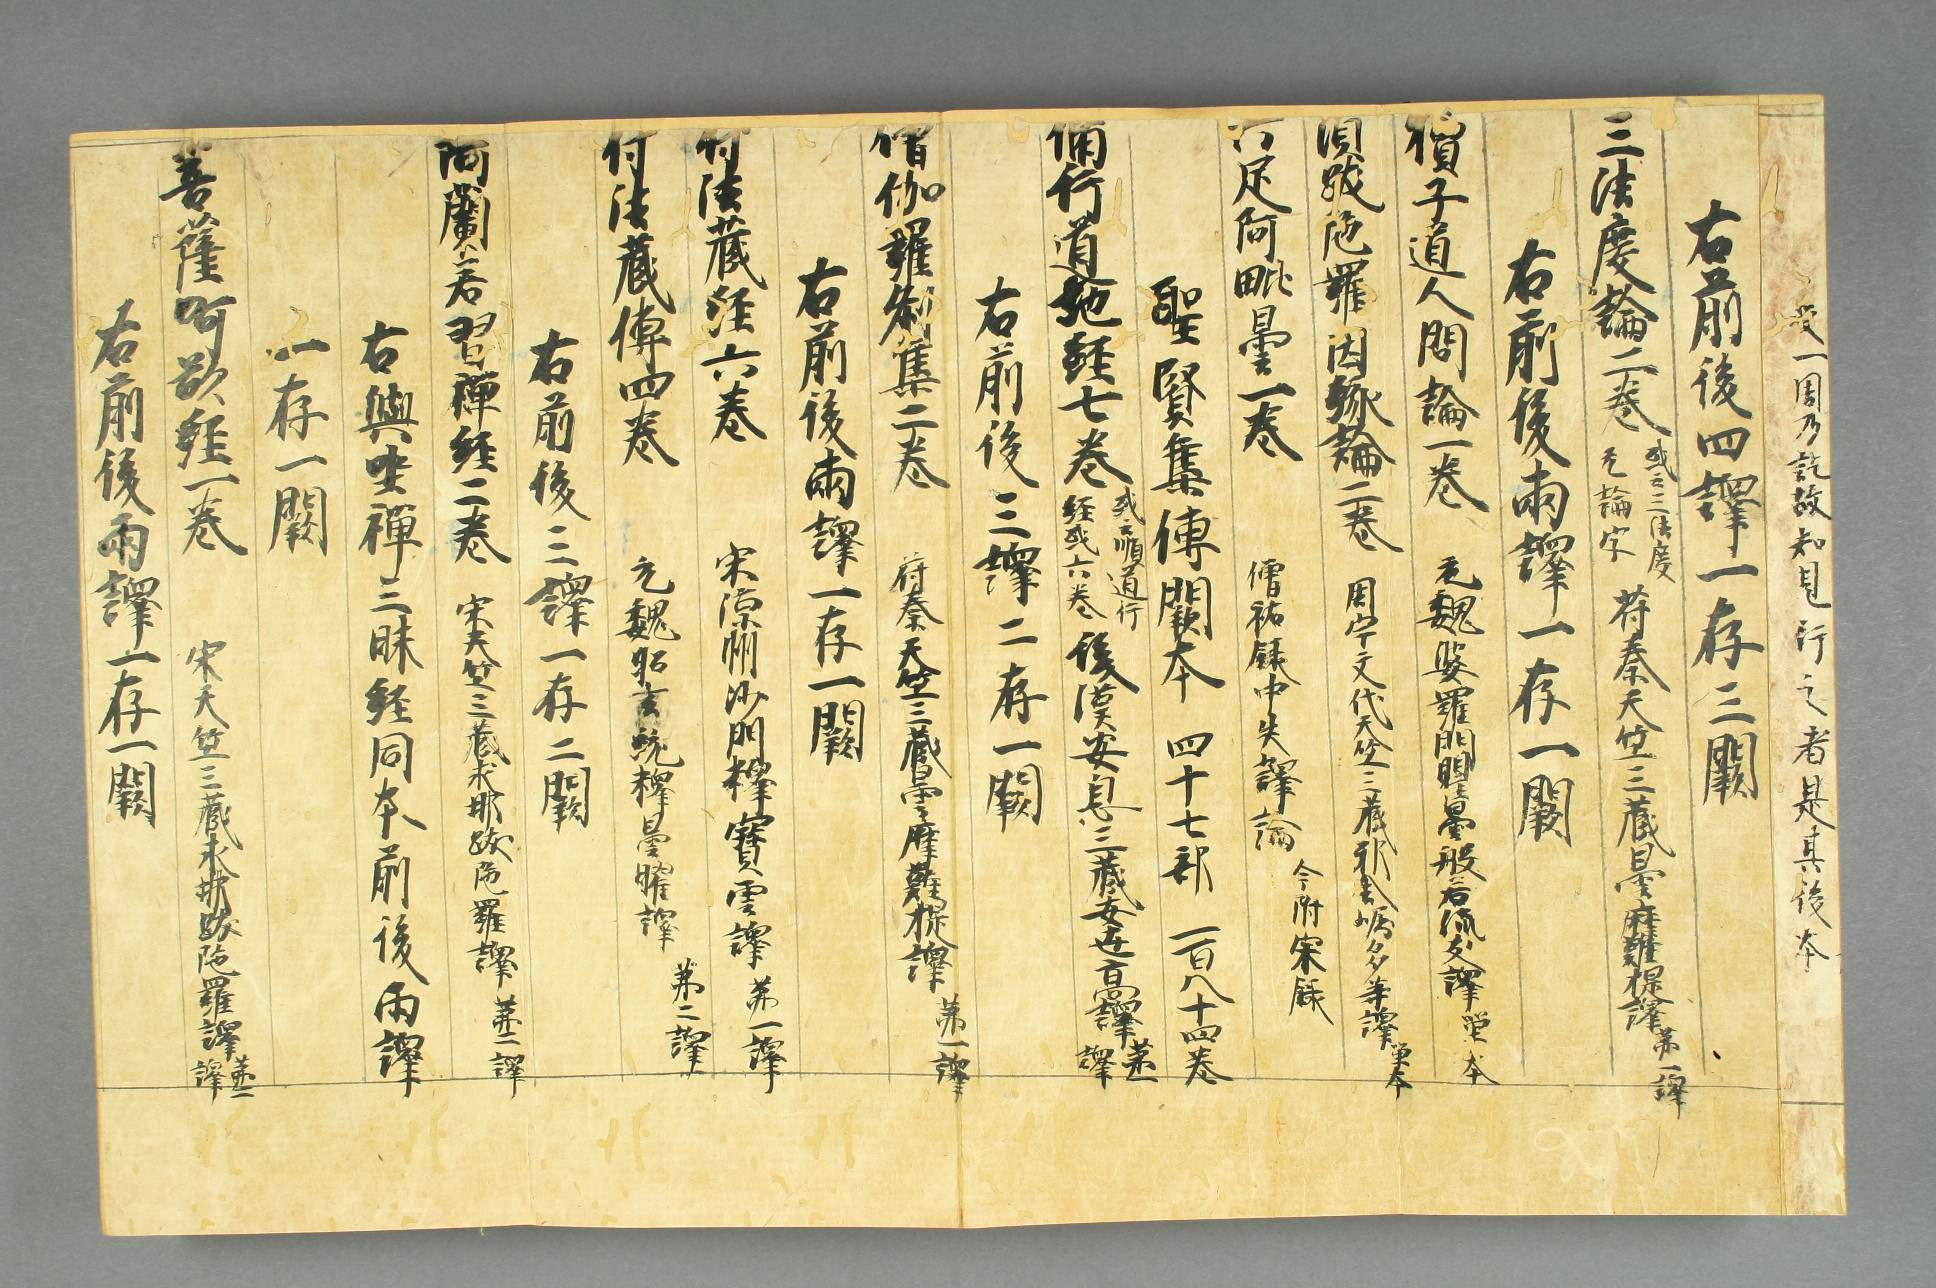 一周乃訖故知見行之者是真後本
右前後四譯一存三闕
三法度論二卷 或云三法度无論字 苻秦天竺三藏曇摩難提譯 第一譯
右前後兩譯一存一闕
犢子道人問論一卷 元魏婆羅門瞿曇般若流支譯 單本
須跋陀羅因緣論二卷 周宇文代天竺三藏 譯 單本
六足阿毗曇一卷 僧祐錄中失譯論 今附宋錄
聖賢集傳闕本 四十七部 一百八十四卷
脩行道地經七卷 或云順道行經或六卷 後漢安息三藏安世高譯 第一譯
右前後三譯二存一闕
僧伽羅剎集二卷 苻秦天竺三藏曇摩難提譯 第一譯
右前後兩譯一存一闕
付法藏經六卷 宋涼州沙門釋寶雲譯 第一譯
付法藏傳四卷 元魏昭玄統釋曇曜譯 第二譯
右前後三譯一存二闕
阿蘭若習禪經二卷 宋天竺三藏求那跋陀羅譯 第二譯
右與坐禪三昧經同本前後兩譯
一存一闕
菩薩呵欲經一卷 宋天竺三藏求那跋陀羅譯 第二譯
右前後兩譯一存一闕